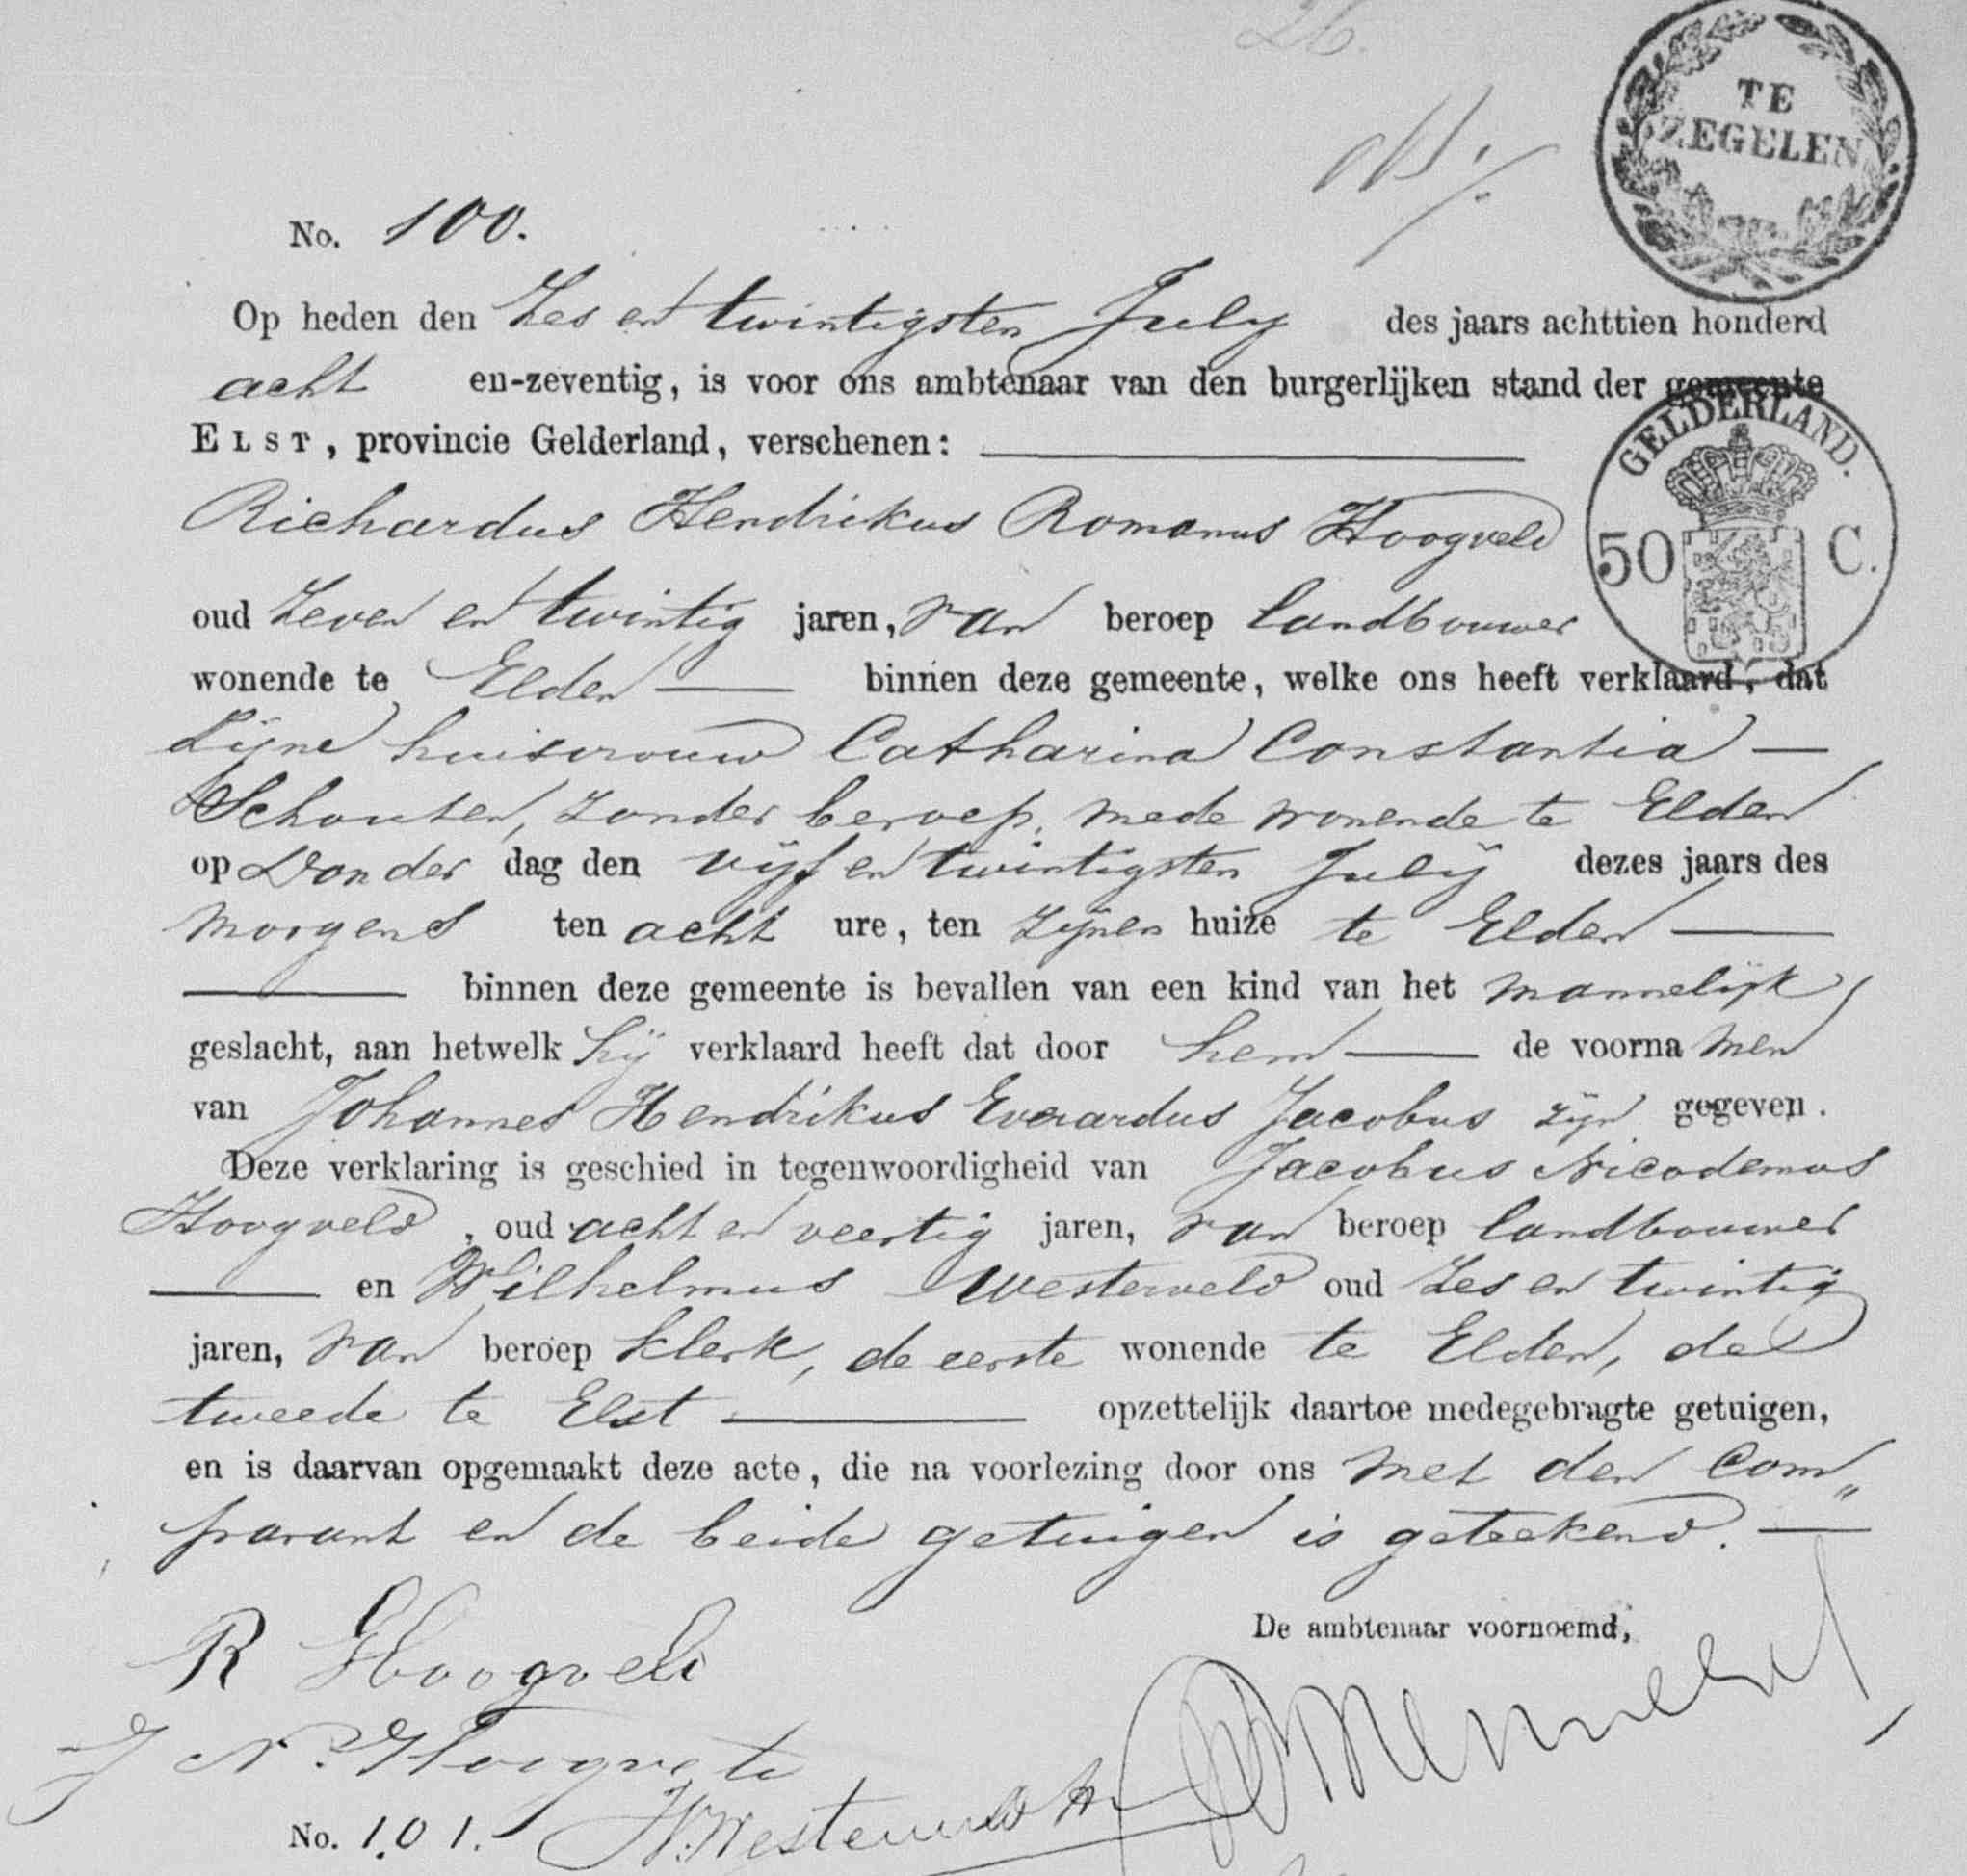 26.
TE
ZEGELEN
No. 100.
Op heden den Zes en twintigsten July des jaars achttien honderd
acht en-zeventig, is voor ons ambtenaar van den burgerlijken stand der gemeente
ELST, provincie Gelderland, verschenen:
GELDERLAND.
50 C.
Richardus Hendrikus Romanus Hoogveld
oud Zeven en twintig jaren, van beroep landbouwer
wonende te Elden binnen deze gemeente, welke ons heeft verklaard, dat
Zijne huisvrouw Catharina Constantia
Schouten, zonder beroep, mede wonende te Elden
op Donder dag den vijf en twintigsten July dezes jaars des
morgens ten acht ure, ten zijnen huize te Elden
binnen deze gemeente is bevallen van een kind van het mannelijk
geslacht, aan hetwelk hij verklaard heeft dat door hem de voorna men
van Johannes Hendrikus Everardus Jacobus zijn gegeven.
Deze verklaring is geschied in tegenwoordigheid van Jacobus Nicodemus
Hoogveld, oud acht en veertig jaren, van beroep landbouwer
en Wilhelmus Westerveld oud Zes en twintig
jaren, van beroep klerk, de eerste wonende te Elden, de
tweede te Elst opzettelijk daartoe medegebragte getuigen,
en is daarvan opgemaakt deze acte, die na voorlezing door ons met den Com„
parant en de beide getuigen is geteekend.
De ambtenaar voornoemd,
R Hoogveld
J N. Hoogveld
No. 101. W. Westerveld